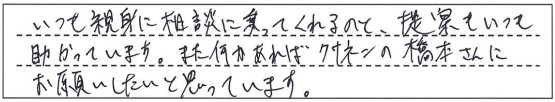 いつも親身に相談に乗ってくれるのと、提案もいつも
助かっています。また何かあればクサネンの橋本さんに
お願いしたいと思っています。